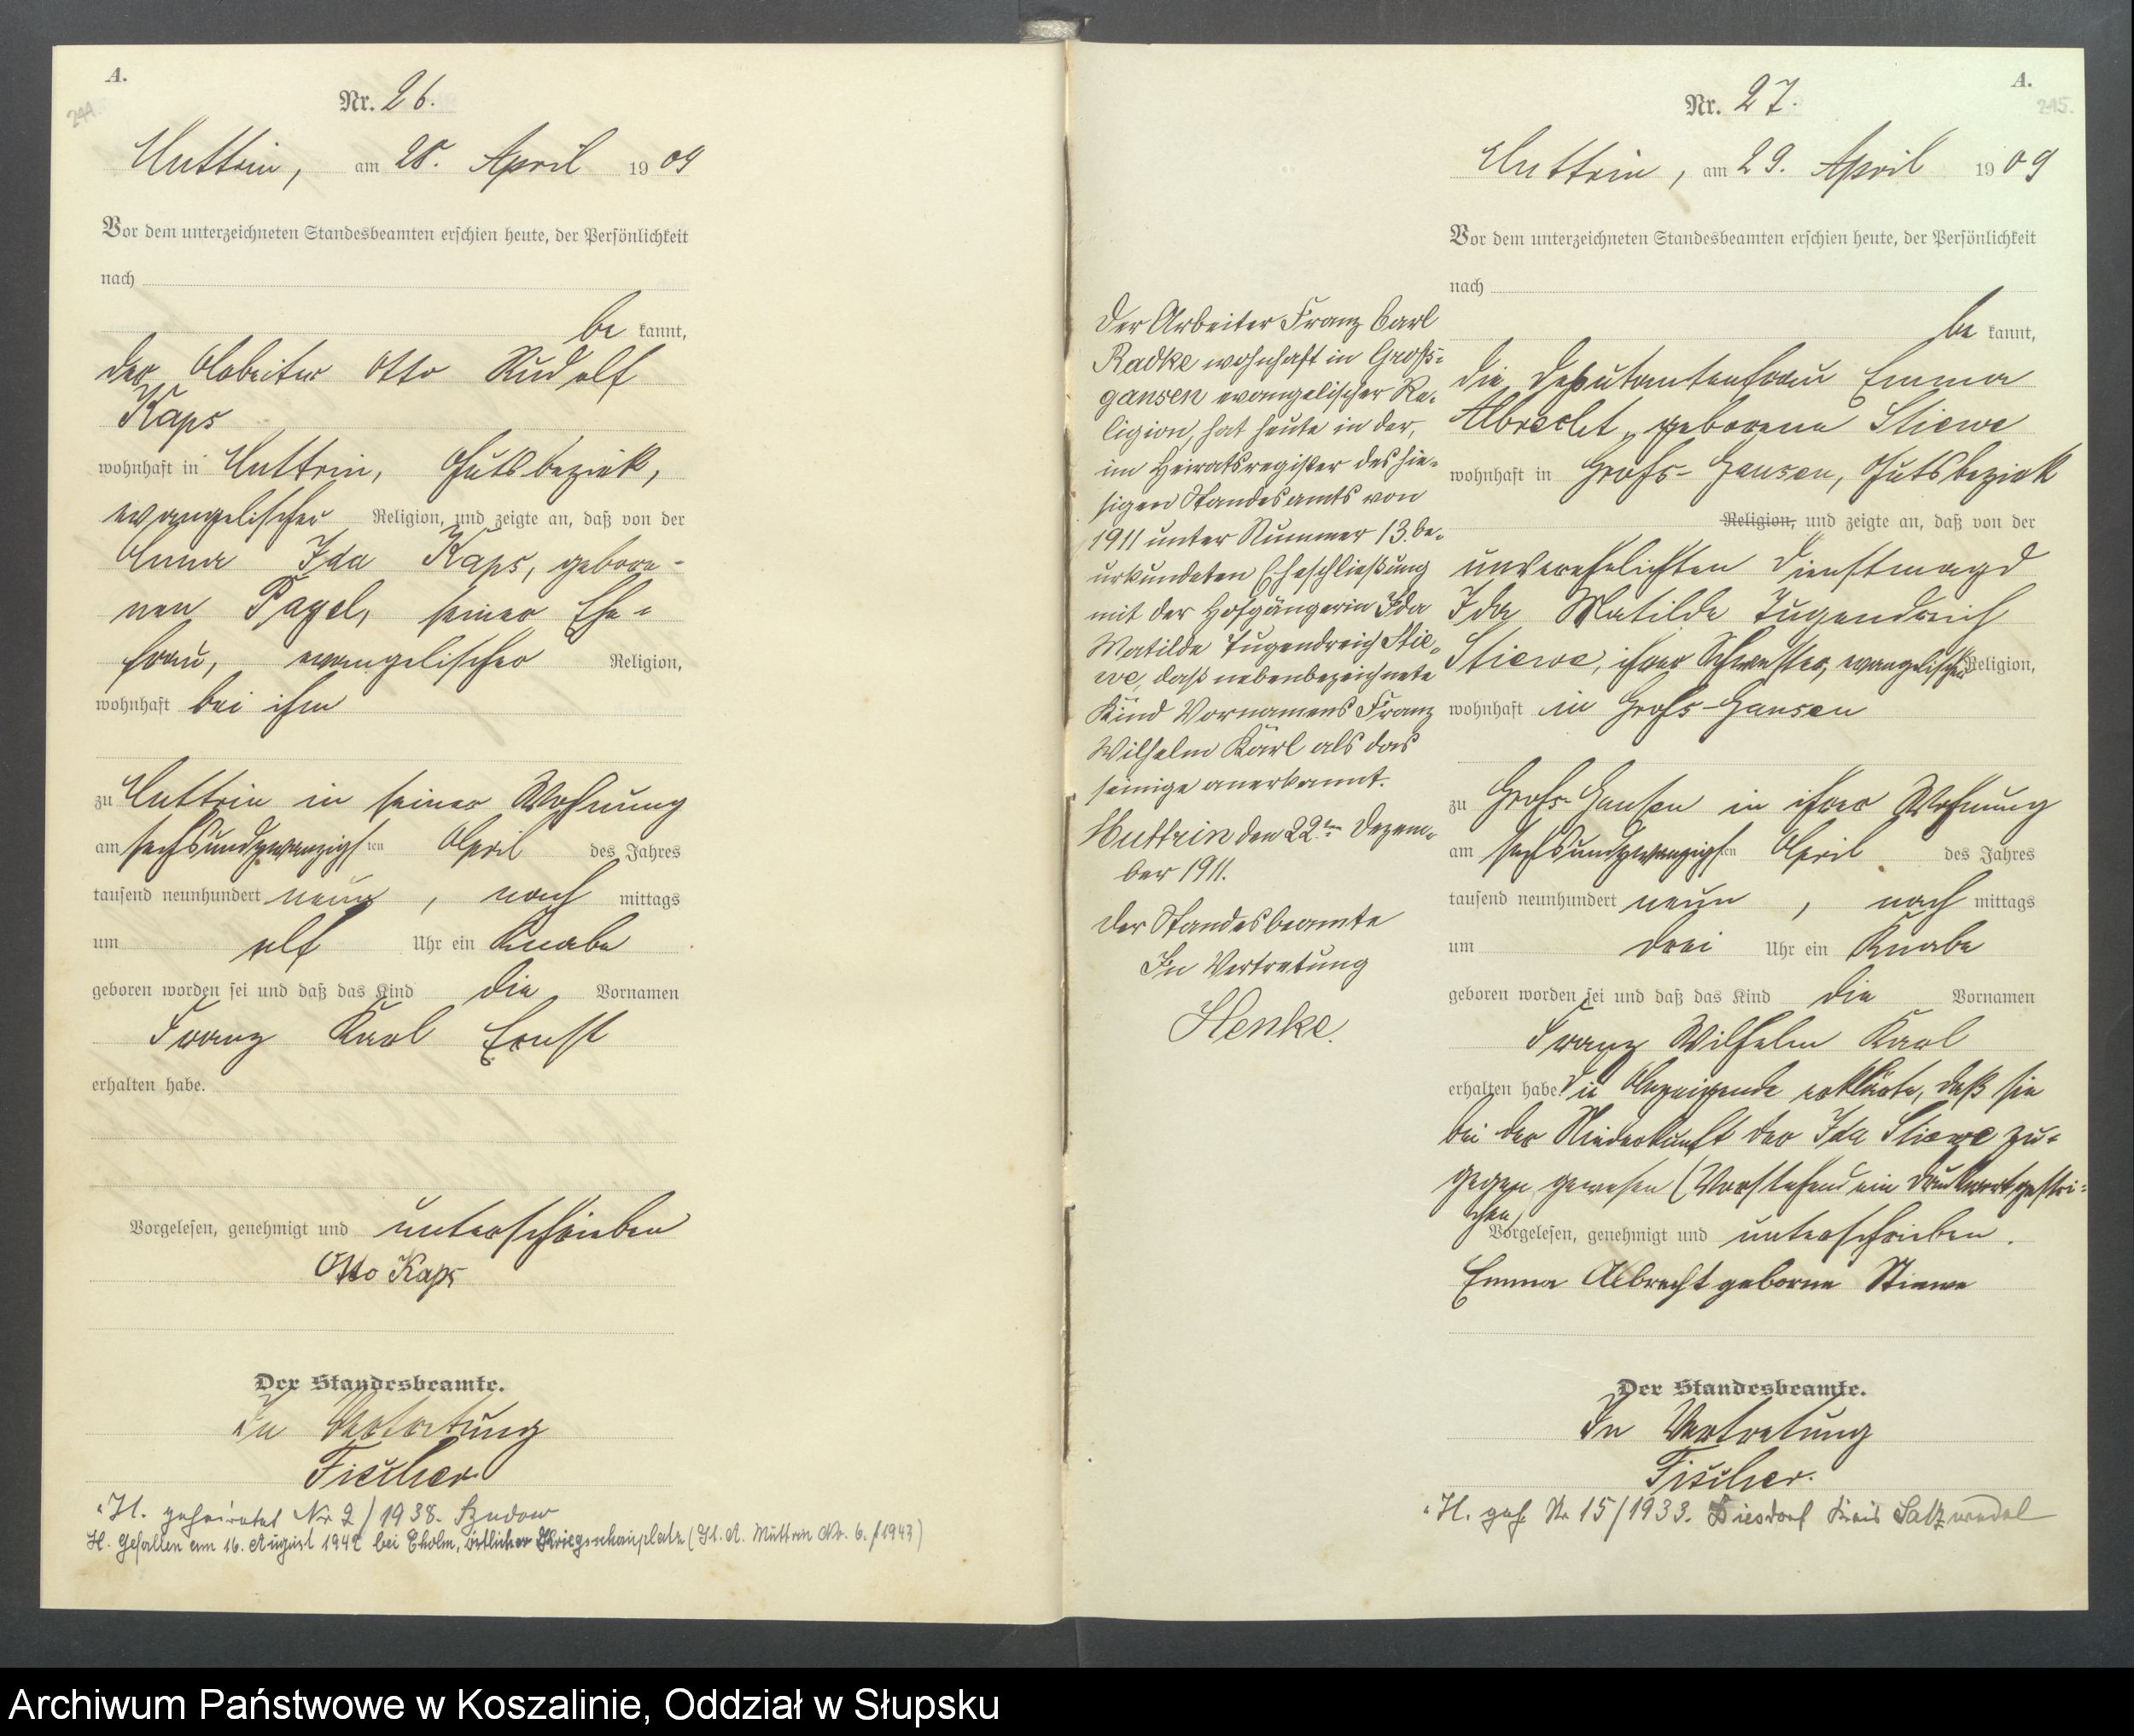 A.
244.
Nr. 26.
Muttrin, am 28. April 1909
Vor dem unterzeichneten Standesbeamten erschien heute, der Persönlichkeit
nach
be kannt,
der Arbeiter Otto Rudolf
Kaps
wohnhaft in Muttrin, Gutsbezirk,
evangelischer Religion, und zeigte an, daß von der
Anna Ida Kaps, gebore-
nen Pagel, seiner Ehe-
frau, evangelischer Religion,
wohnhaft bei ihm
zu Muttrin in seiner Wohnung
am sechsundzwanzigsten April des Jahres
tausend neunhundert neun, nach mittags
um elf Uhr ein Knabe
geboren worden sei und daß das Kind die Vornamen
Franz Karl Ernst
erhalten habe.
Vorgelesen, genehmigt und unterschrieben
Otto Kaps
Der Standesbeamte.
In Vertretung
Fischer
H. geheiratet Nr. 2/1938. Budow
H. Gefallen am 16. August 1942 bei Cholm, östlicher Kriegsschauplatz (St. A. Muttrin Nr. 6./1943)
A.
245.
Nr. 27.
Muttrin, am 29. April 1909
Vor dem unterzeichneten Standesbeamten erschien heute, der Persönlichkeit
nach
be kannt,
die Deputantenfrau Emma
Albrecht, geborene Stiewe
wohnhaft in Groß-Gansen, Gutsbezirk
Religion, und zeigte an, daß von der
unverehelichten Dienstmagd
Ida Matilde Tugendreich
Stiewe, ihrer Schwester, evangelischer Religion,
wohnhaft in Groß-Gansen
zu Groß-Gansen in ihrer Wohnung
am sechsundzwanzigsten April des Jahres
tausend neunhundert neun, nach mittags
um drei Uhr ein Knabe
geboren worden sei und daß das Kind die Vornamen
Franz Wilhelm Karl
erhalten habe. Die Anzeigende erklärte, daß sie
bei der Niederkunft der Ida Stiewe zu-
gegen gewesen (Vorstehend ein Druckwort gestri-
chen)
Vorgelesen, genehmigt und unterschrieben.
Emma Albrecht geborne Stiewe
Der Standesbeamte.
In Vertretung
Fischer.
H. geh. Nr 15/1933. Diesdorf Kreis Salzwedel
Der Arbeiter Franz Carl
Radke wohnhaft in Groß-
gansen evangelischer Re-
ligion, hat heute in der,
im Heiratsregister des hie-
sigen Standesamts von
1911 unter Nummer 13. be-
urkundeten Eheschließung
mit der Hofgängerin Ida
Matilde Tugendreich Stie-
we, daß nebenbezeichnete
Kind Vornamens Franz
Wilhelm Karl als das
seinige anerkannt.
Muttrin den 22ten Dezem-
ber 1911.
Der Standesbeamte
In Vertretung
Henke.
Archiwum Państwowe w Koszalinie, Oddział w Słupsku